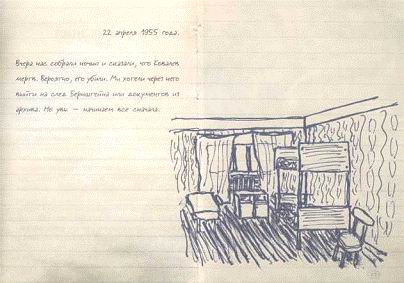 22 апреля 1955 года.
Вчера нас собрали ночью и сказали, что Ковалев
мертв. Вероятно, его убили. Мы хотели через него
выйти на след Бернштейна или документов из
архива. Но увы — начинаем все сначала.